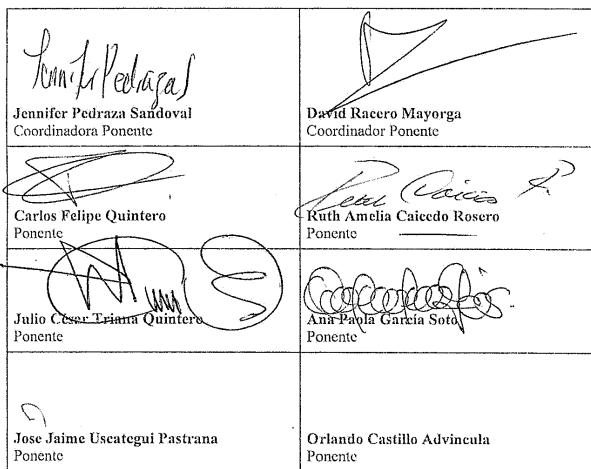 Jennifer Pedraza S
Jennifer Pedraza Sandoval
Coordinadora Ponente
David Racero Mayorga
Coordinador Ponente
Carlos Felipe Quintero
Ponente
Ruth Caicedo R
Ruth Amelia Caicedo Rosero
Ponente
Julio César Triana Quintero
Ponente
Ana Paola García Soto
Ponente
Jose Jaime Uscategui Pastrana
Ponente
Orlando Castillo Advincula
Ponente